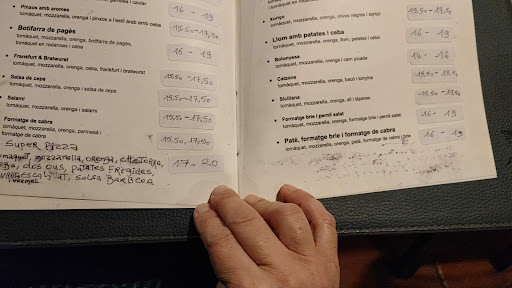 Piraus amb aromes
tomàquet, mozzarella, orenga i piraus a l'estil àrab amb ceba
16 - 19
Botifarra de pagès
tomàquet, mozzarella, orenga, botifarra de pagès,
tomàquet en rodanxes i ceba
15,50-17,50
Frankfurt & Bratwurst
tomàquet, mozzarella, orenga, ceba, frankfurt i bratwurst
15 - 19
Salsa de ceps
tomàquet, mozzarella, orenga i salsa de ceps
15,50-17,50
Salami
tomàquet, mozzarella, orenga i salami
15,50-17,50
Formatge de cabra
tomàquet, mozzarella, orenga, parmesà i
formatge de cabra
15,50, 17,50
SUPER PIZZA
mozzarella, orenga,
17-20
dos ous, patates fregides,
salsa BARBCOA
Xoriço
tomàquet, mozzarella, orenga, olives negres i xoriço
15,50-17,50
Llom amb patates i ceba
tomàquet, mozzarella, orenga, llom, patates i ceba
16 - 19
Bolonyesa
tomàquet, mozzarella, orenga i carn picada
Calzone
tomàquet, mozzarella, orenga, bacó i tonyina
Siciliana
tomàquet, mozzarella, orenga, all i tàperes
Formatge brie i pernil salat
tomàquet, mozzarella, orenga, formatge brie i pernil salat
16 - 19
Paté, formatge brie i formatge de cabra
tomàquet, mozzarella, orenga, paté, formatge de cabra i brie
16 - 19